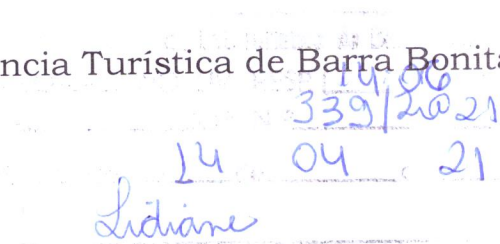 ncia Turística de Barra Bonita
14:06
339/2021
14 04 21
Lidiane